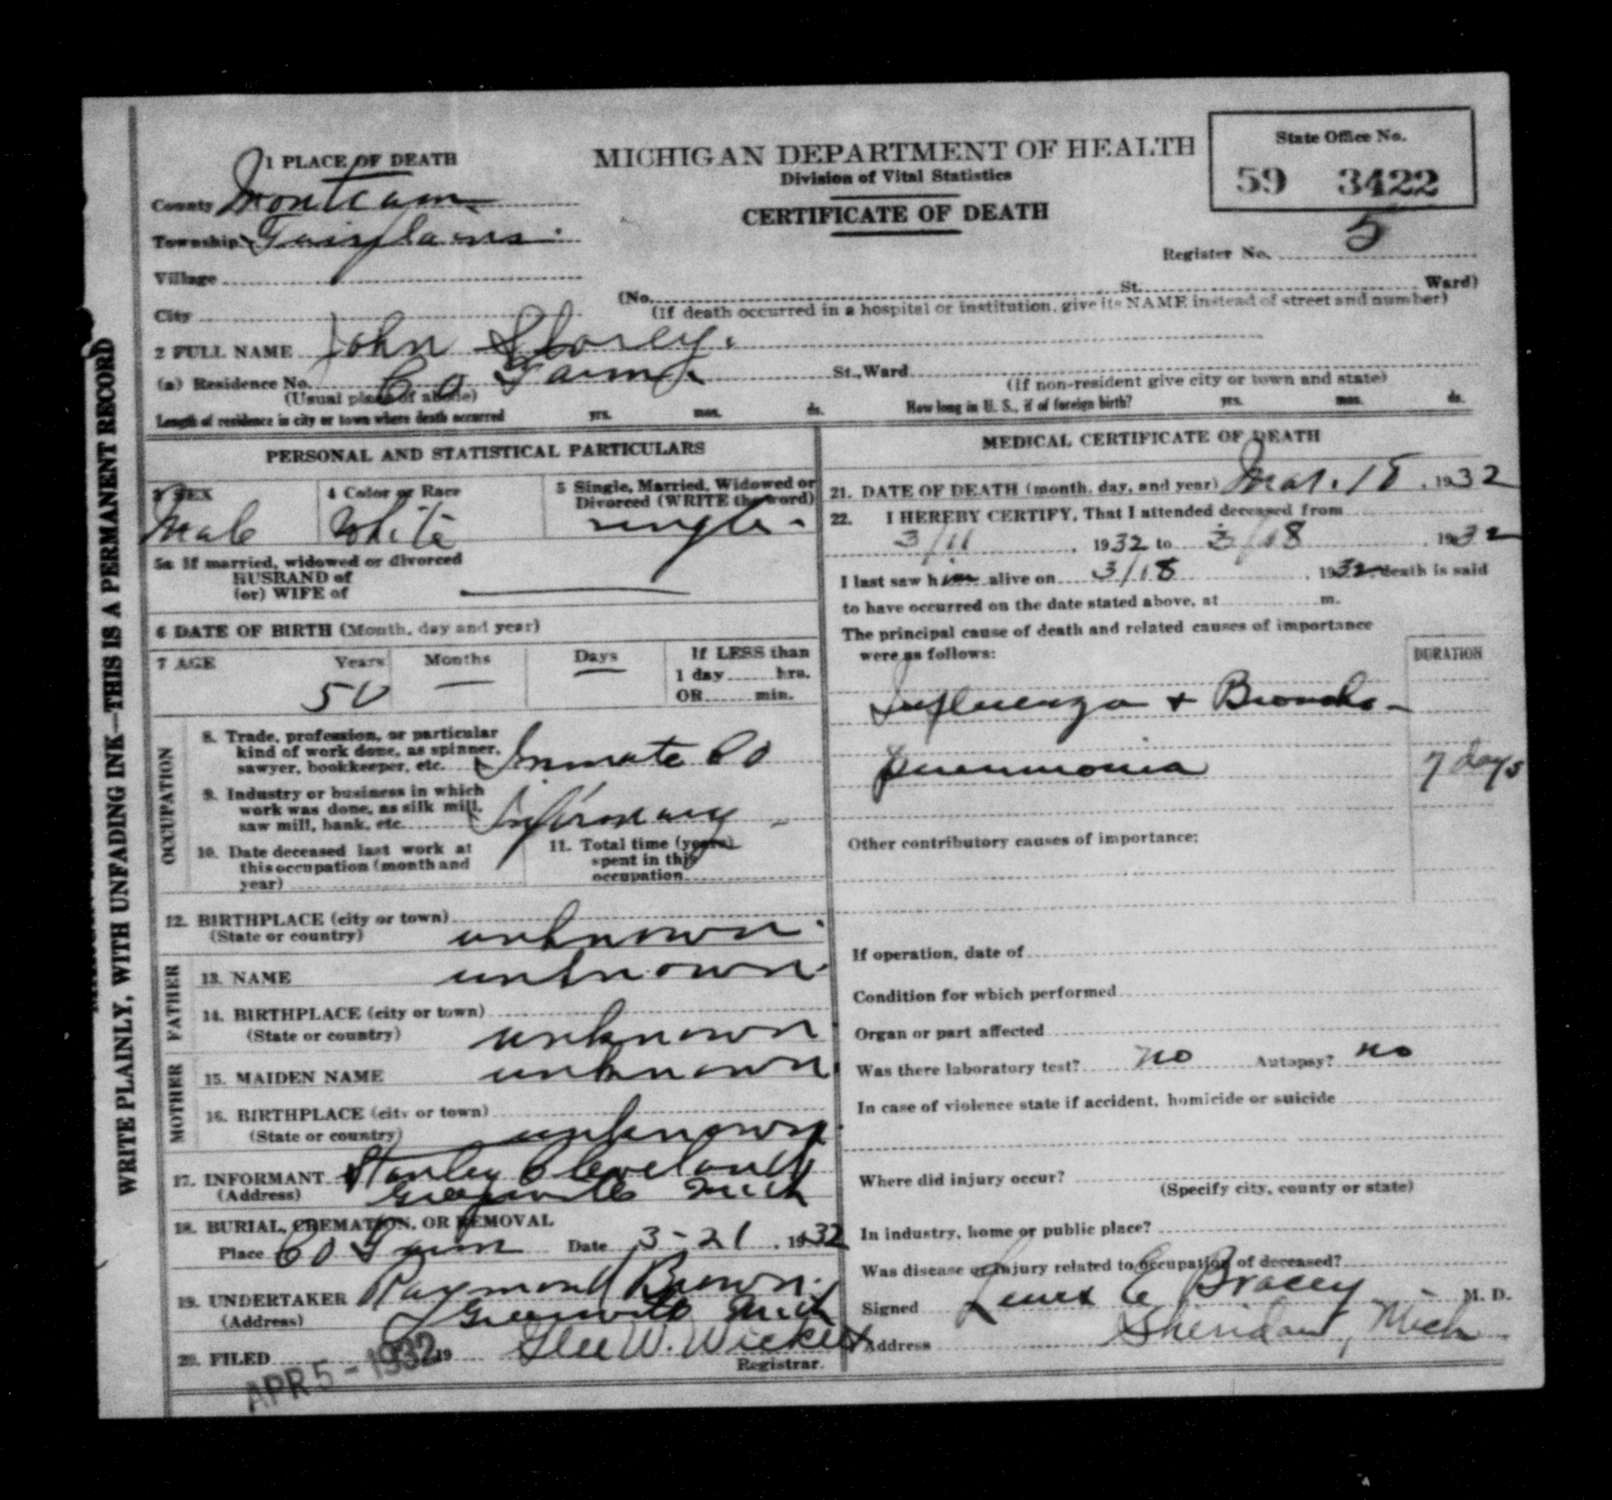 1 PLACE OF DEATH
MICHIGAN DEPARTMENT OF HEALTH
Division of Vital Statistics
CERTIFICATE OF DEATH
State Office No.
59 3422
County Montcalm
Township Fairplains.
Register No. 5
Village
City
(No. St. Ward)
(If death occurred in a hospital or institution, give its NAME instead of street and number)
2 FULL NAME John Storey.
(a) Residence No. Co Farm St., Ward
(Usual place of abode)
(If non-resident give city or town and state)
Length of residence in city or town where death occurred yrs. mos. ds. How long in U. S., if of foreign birth? yrs. mos. ds.
PERSONAL AND STATISTICAL PARTICULARS
3 SEX
Male
4 Color or Race
White
5 Single, Married, Widowed or
Divorced (WRITE the word)
single.
5a If married, widowed or divorced
HUSBAND of
(or) WIFE of
6 DATE OF BIRTH (Month, day and year)
7 AGE Years Months Days
50 — —
If LESS than
1 day hrs.
OR min.
OCCUPATION
8. Trade, profession, or particular
kind of work done, as spinner,
sawyer, bookkeeper, etc. Inmate Co
9. Industry or business in which
work was done, as silk mill,
saw mill, bank, etc. Infirmary -
10. Date deceased last work at
this occupation (month and
year)
11. Total time (years)
spent in this
occupation
12. BIRTHPLACE (city or town)
(State or country) unknown.
FATHER
13. NAME unknown.
14. BIRTHPLACE (city or town)
(State or country) unknown
MOTHER
15. MAIDEN NAME unknown
16. BIRTHPLACE (city or town)
(State or country) unknown
17. INFORMANT Stanley Cleveland
(Address) Greenville Mich
18. BURIAL, CREMATION, OR REMOVAL
Place Co Farm Date 3-21, 1932
19. UNDERTAKER Raymond Brown.
(Address) Greenville Mich
20. FILED 19 Glee W.
APR 5 - 1932
Registrar.
MEDICAL CERTIFICATE OF DEATH
21. DATE OF DEATH (month, day, and year) Mar. 18, 1932
22. I HEREBY CERTIFY, That I attended deceased from
3/11, 1932 to 3/18, 1932
I last saw him alive on 3/18, 1932 death is said
to have occurred on the date stated above, at m.
The principal cause of death and related causes of importance
were as follows:
DURATION
Influenza + Broncho-
pneumonia 7 days
Other contributory causes of importance:
If operation, date of
Condition for which performed
Organ or part affected
Was there laboratory test? no Autopsy? no
In case of violence state if accident, homicide or suicide
Where did injury occur?
(Specify city, county or state)
In industry, home or public place?
Was disease or injury related to occupation of deceased?
Signed E Bracey M. D.
Address Sheridan, Mich
WRITE PLAINLY, WITH UNFADING INK—THIS IS A PERMANENT RECORD